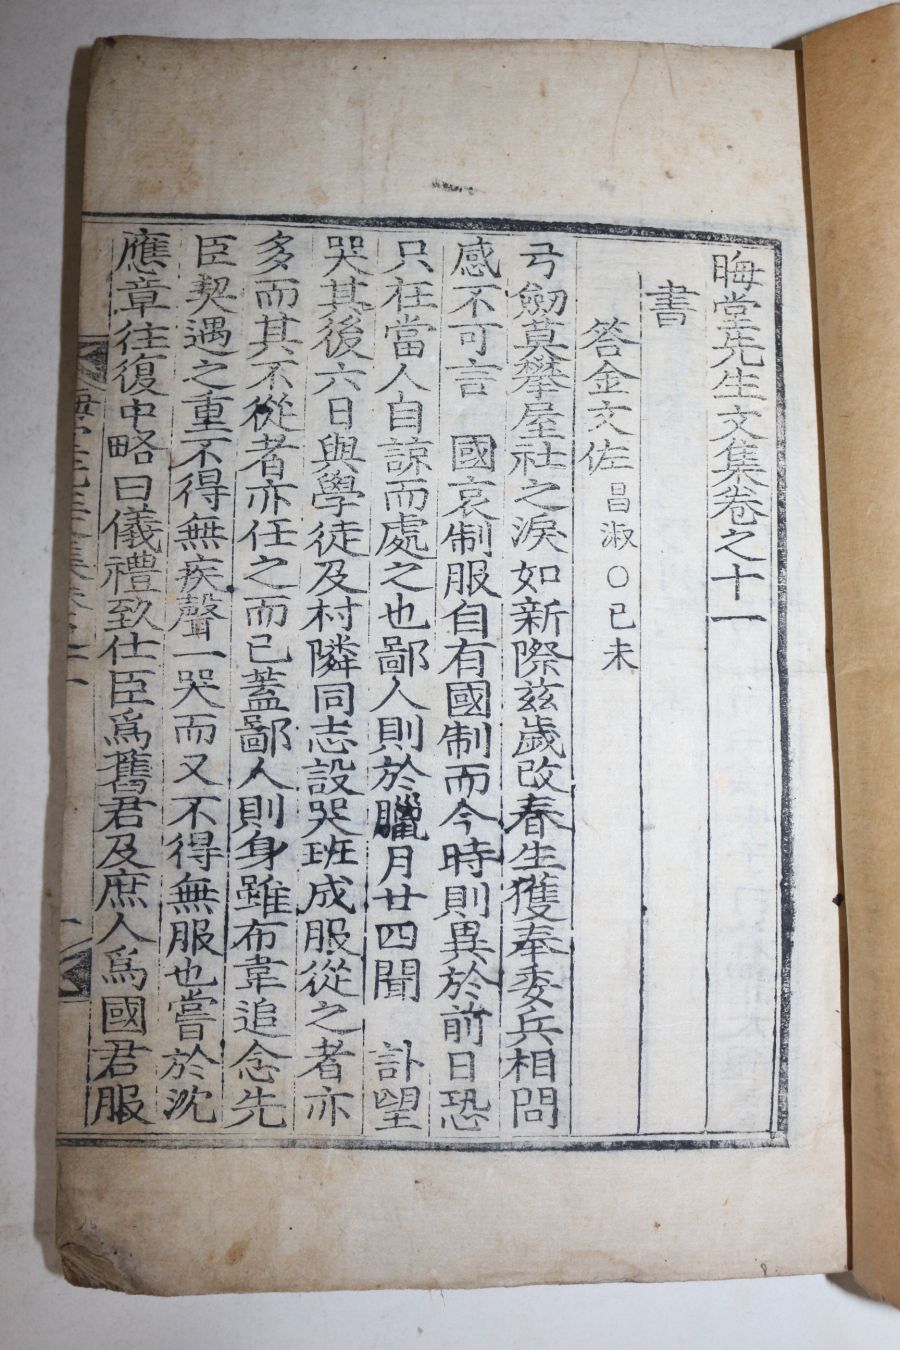 晦堂先生文集卷之十一
書
答金文佐昌淑○己未
弓劒莫攀屋社之淚如新際玆歲改春生獲奉委兵相問
感不可言 國哀制服自有國制而今時則異於前日恐
只在當人自諒而處之也鄙人則於臘月廿四聞 訃望
哭其後六日與學徒及村隣同志設哭班成服從之者亦
多而其不從者亦任之而已蓋鄙人則身雖布韋追念先
臣契遇之重不得無疾聲一哭而又不得無服也嘗於沈
應章往復中略曰儀禮致仕臣爲舊君及庶人爲國君服